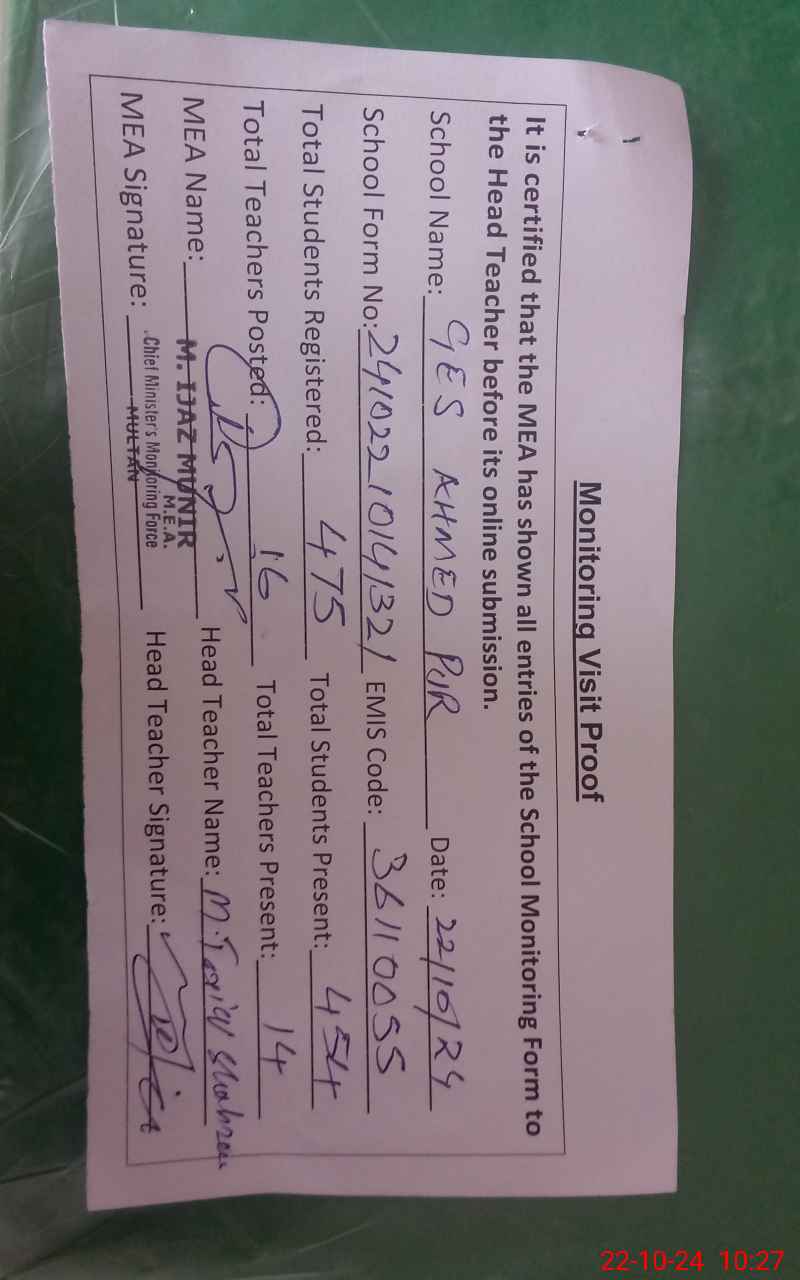 Monitoring Visit Proof
It is certified that the MEA has shown all entries of the School Monitoring Form to
the Head Teacher before its online submission.
School Name: GES AHMED PUR Date: 22/10/24
School Form No: 24102210141321 EMIS Code: 36110055
Total Students Registered: 475 Total Students Present: 454
Total Teachers Posted: 16 Total Teachers Present: 14
MEA Name: M. IJAZ MUNIR Head Teacher Name: M.
M.E.A.
MEA Signature: Chief Minister's Monitoring Force Head Teacher Signature:
MULTAN
22-10-24 10:27